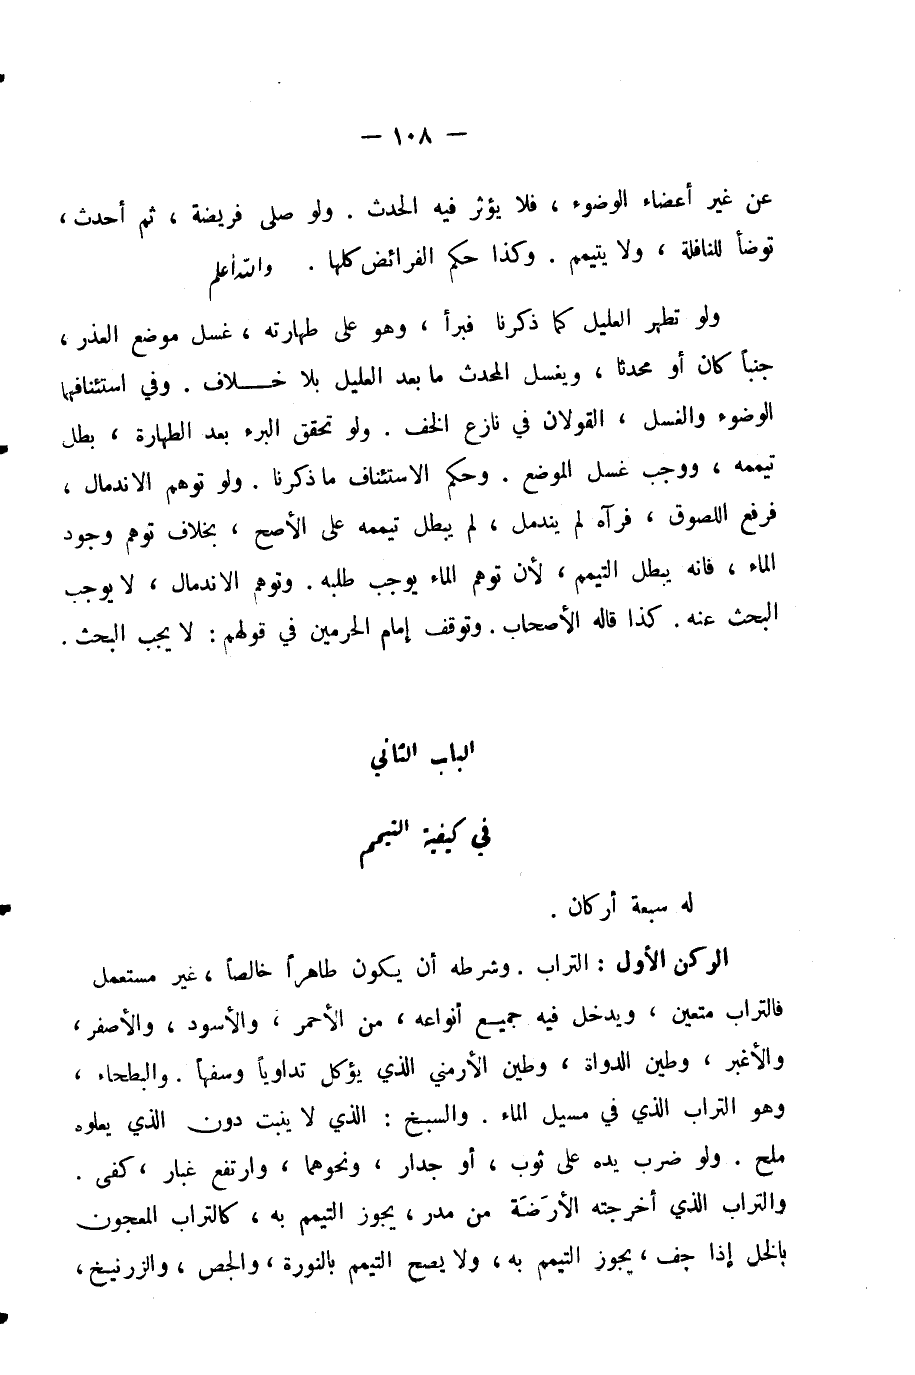 — ١٠٨ —
عن غير أعضاء الوضوء ، فلا يؤثر فيه الحدث . ولو صلى فريضة ، ثم أحدث ،
توضأ للنافلة ، ولا يتيمم . وكذا حكم الفرائض كلها . والله أعلم
ولو تطهر العليل كما ذكرنا فبرأ ، وهو على طهارته ، غسل موضع العذر ،
جنباً كان أو محدثا ، ويغسل المحدث ما بعد العليل بلا خـــلاف . وفي استئنافها
الوضوء والغسل ، القولان في نازع الخف . ولو تحقق البرء بعد الطهارة ، بطل
تيممه ، ووجب غسل الموضع . وحكم الاستئناف ما ذكرنا . ولو توهم الاندمال ،
فرفع اللصوق ، فرآه لم يندمل ، لم يبطل تيممه على الأصح ، بخلاف توهم وجود
الماء ، فانه يبطل التيمم ، لأن توهم الماء يوجب طلبه . وتوهم الاندمال ، لا يوجب
البحث عنه . كذا قاله الأصحاب . وتوقف إمام الحرمين في قولهم : لا يجب البحث .
الباب الثاني
في كيفية التيمم
له سبعة أركان .
الركن الأول : التراب . وشرطه أن يكون طاهراً خالصاً ، غير مستعمل
فالتراب متعين ، ويدخل فيه جميع أنواعه ، من الأحمر ، والأسود ، والأصفر ،
والأغبر ، وطين الدواة ، وطين الأرمني الذي يؤكل تداوياً وسفهاً . والبطحاء ،
وهو التراب الذي في مسيل الماء . والسبخ : الذي لا ينبت دون الذي يعلوه
ملح . ولو ضرب يده على ثوب ، أو جدار ، ونحوهما ، وارتفع غبار ، كفى .
والتراب الذي أخرجته الأرَضَة من مدر ، يجوز التيمم به ، كالتراب المعجون
بالخل إذا جف ، يجوز التيمم به ، ولا يصح التيمم بالنورة ، والجص ، والزرنيخ ،